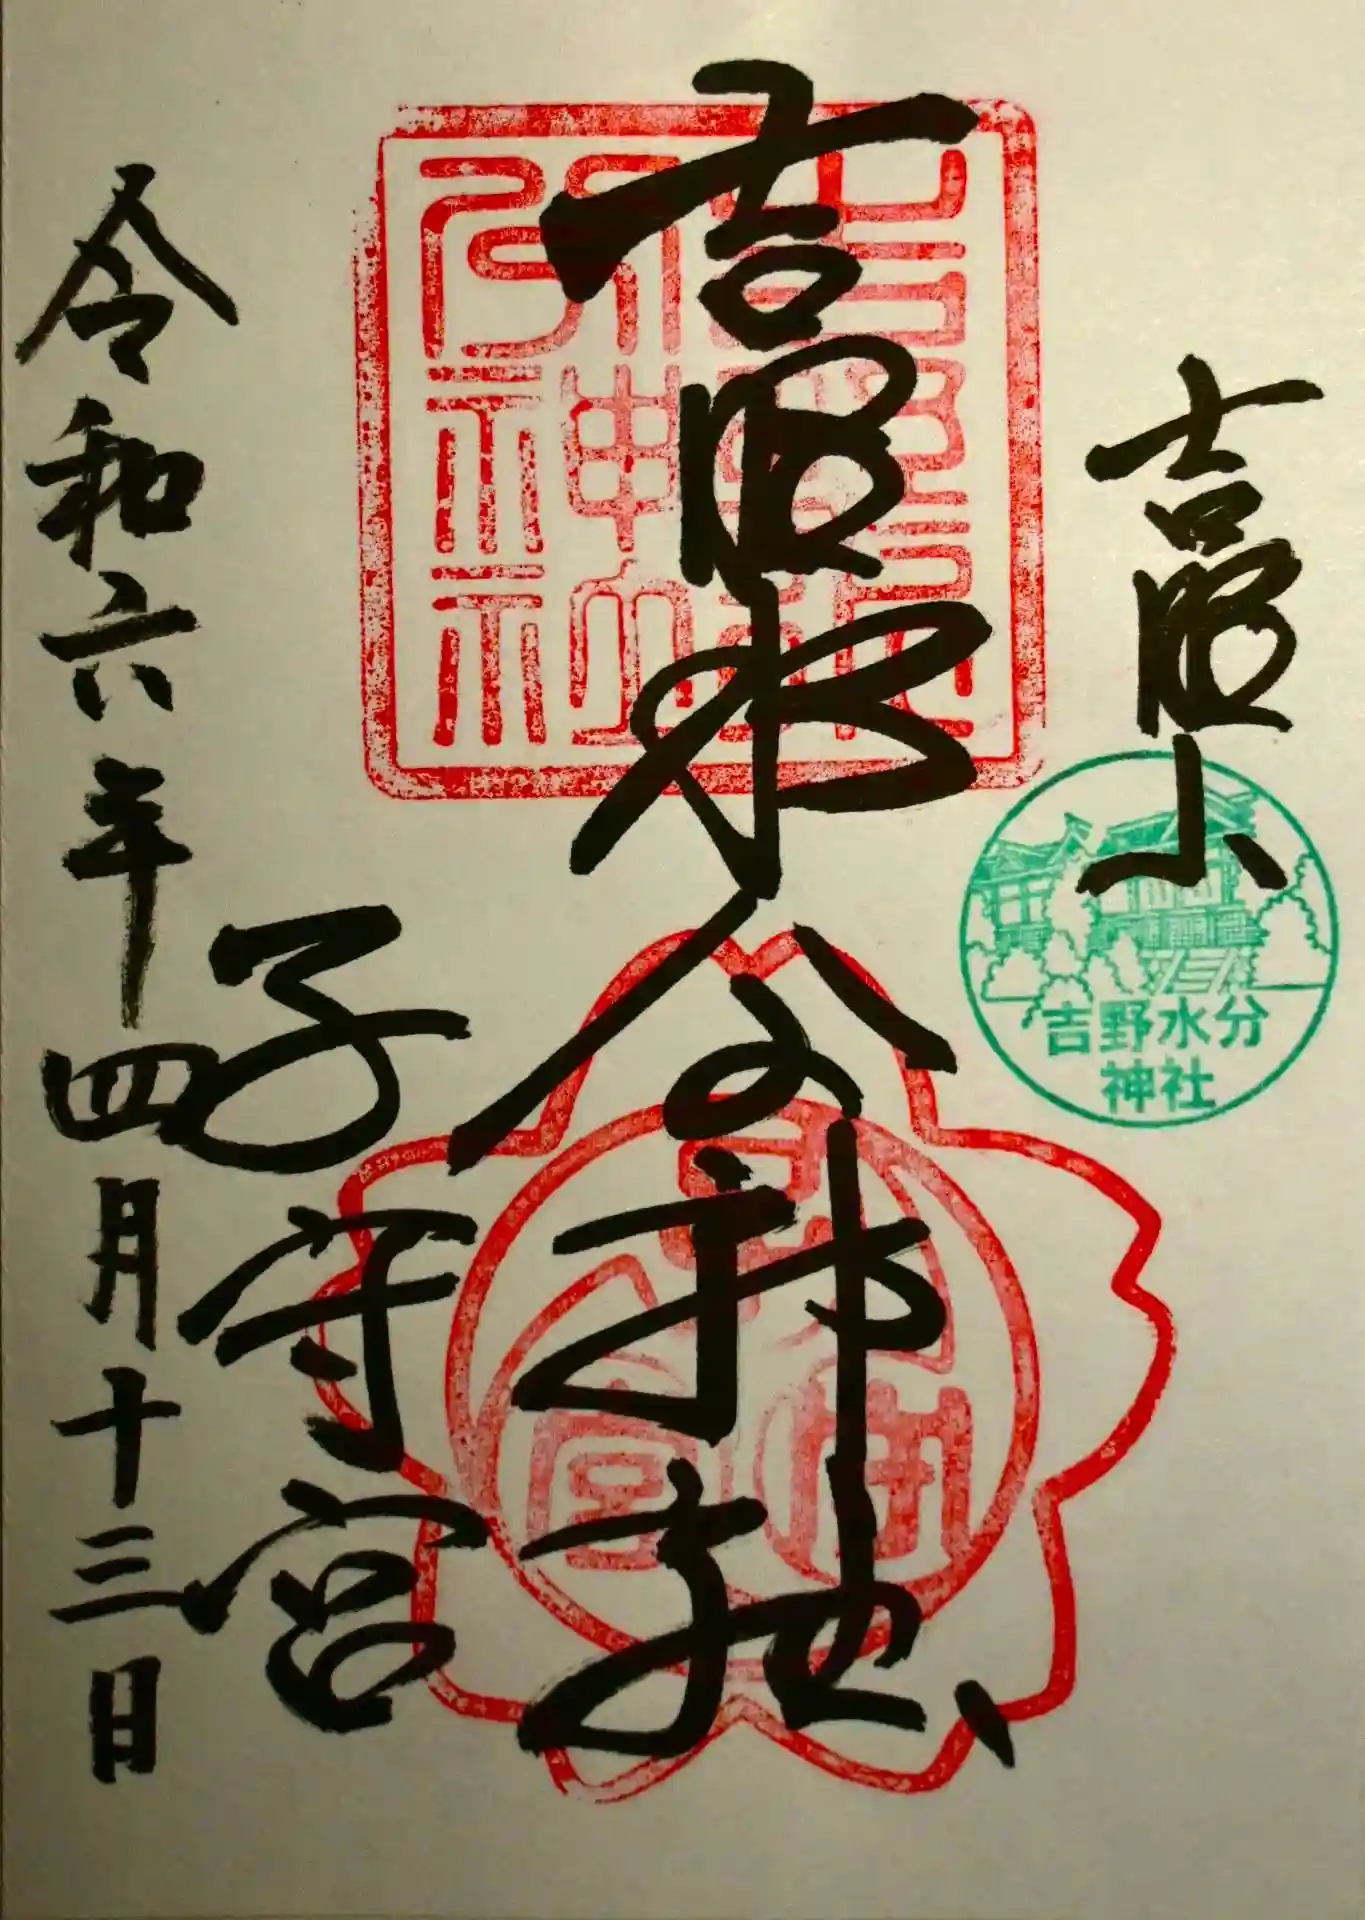 吉野山
吉野水分
神社
吉野水分神社
子守宮
令和六年四月十三日